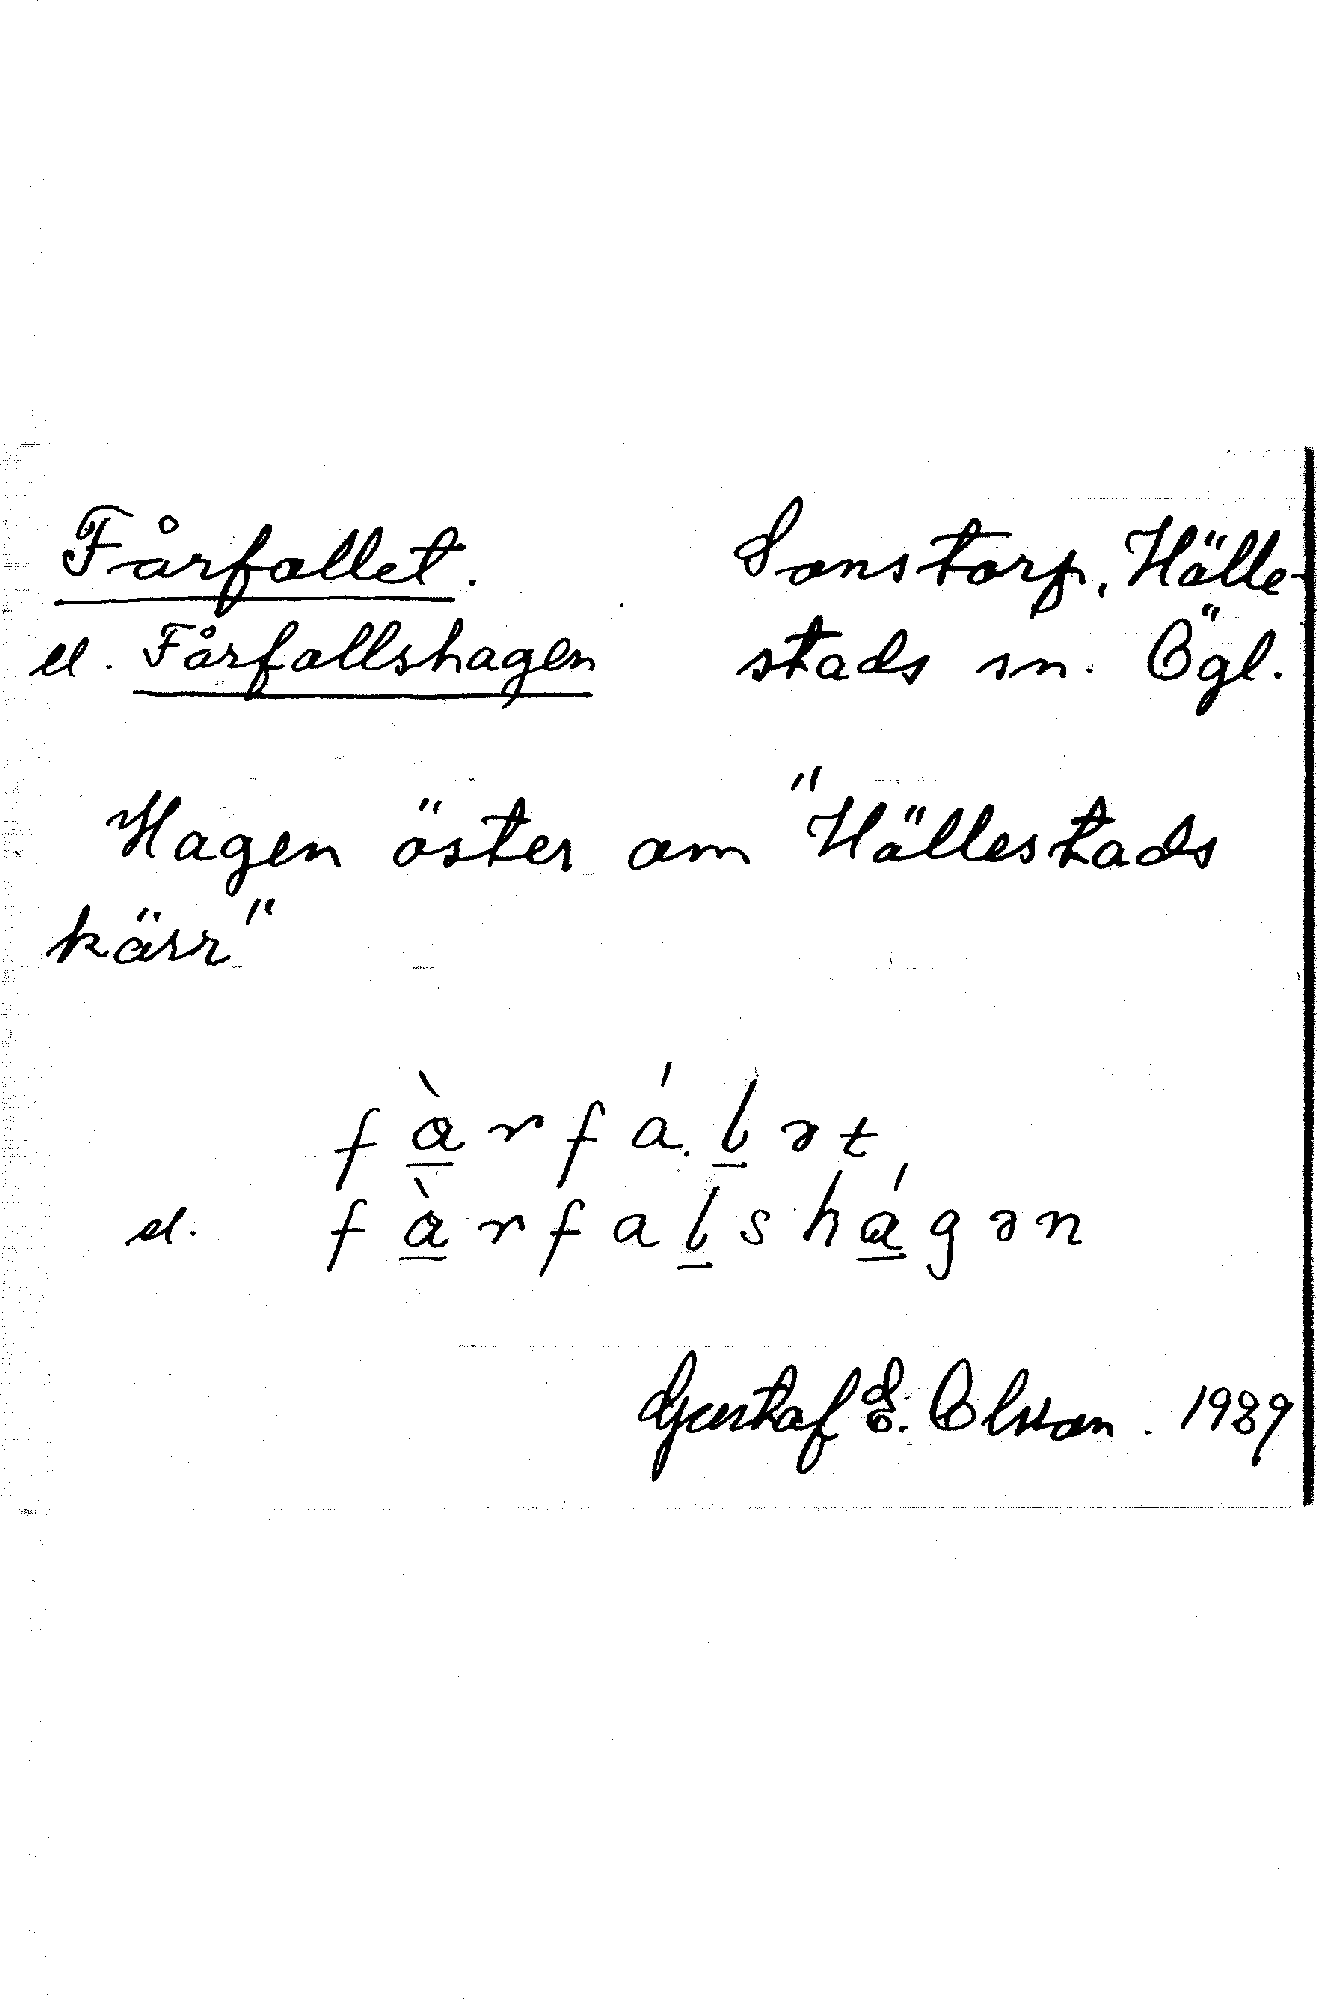 Fårfallet.
Sonstorp, Hälle-
el. Fårfallshagen
stads sn. Ögl.
Hagen öster om "Hällestads
kärr"
fàrfá.lət
el. fàrfalshágən
Gustaf E. Olsson. 1989